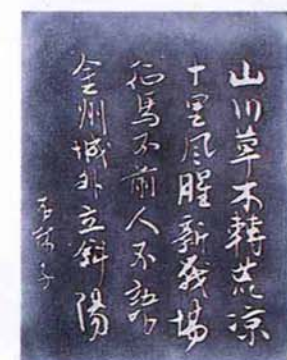 山川草木轉荒凉
十里风腥新戰場
征馬不前人不語
金州城外立斜陽
石林子